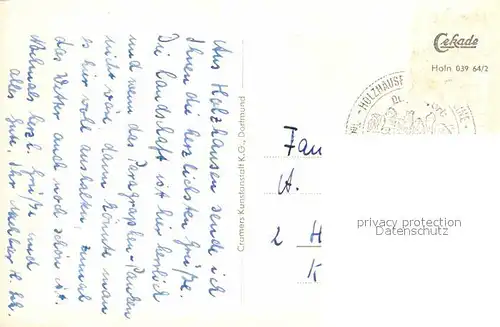 Aus Holzhausen sende ich
Ihnen die herzlichsten Grüße.
Die Landschaft ist hier herrlich
und wenn das Paragraphen-Pauken
nicht wäre, dann könnte man
es hier voll aushalten, zumal
das Wetter auch noch schön ist.
Nochmals herzl. Grüße und
alles Gute, Ihr Nachbar
Cramers Kunstanstalt K.G., Dortmund
Cekade
Hofn 039 64/2
HOLZHAUSE
Fam
A.
2 H
K
privacy protection
Datenschutz